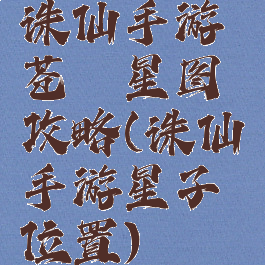 诛仙手游
苍 星图
攻略(诛仙
手游星子
位置)